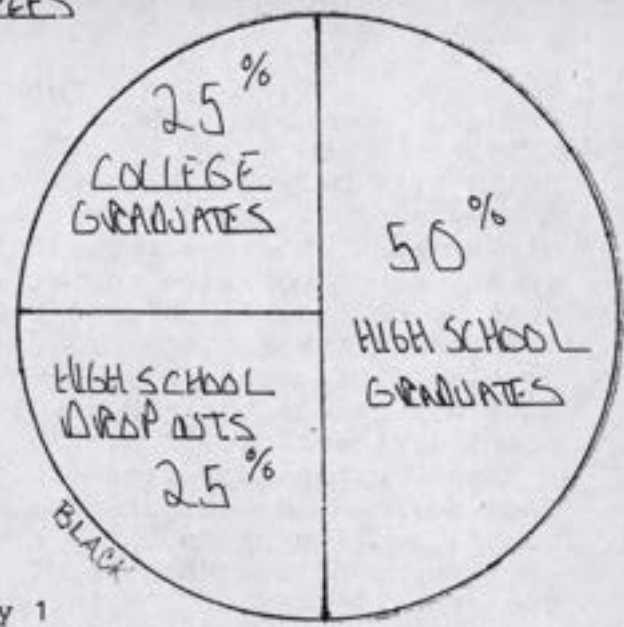 25%
COLLEGE
GRADUATES
50%
HIGH SCHOOL
GRADUATES
HIGH SCHOOL
DROP OUTS
25%
BLACK
y 1